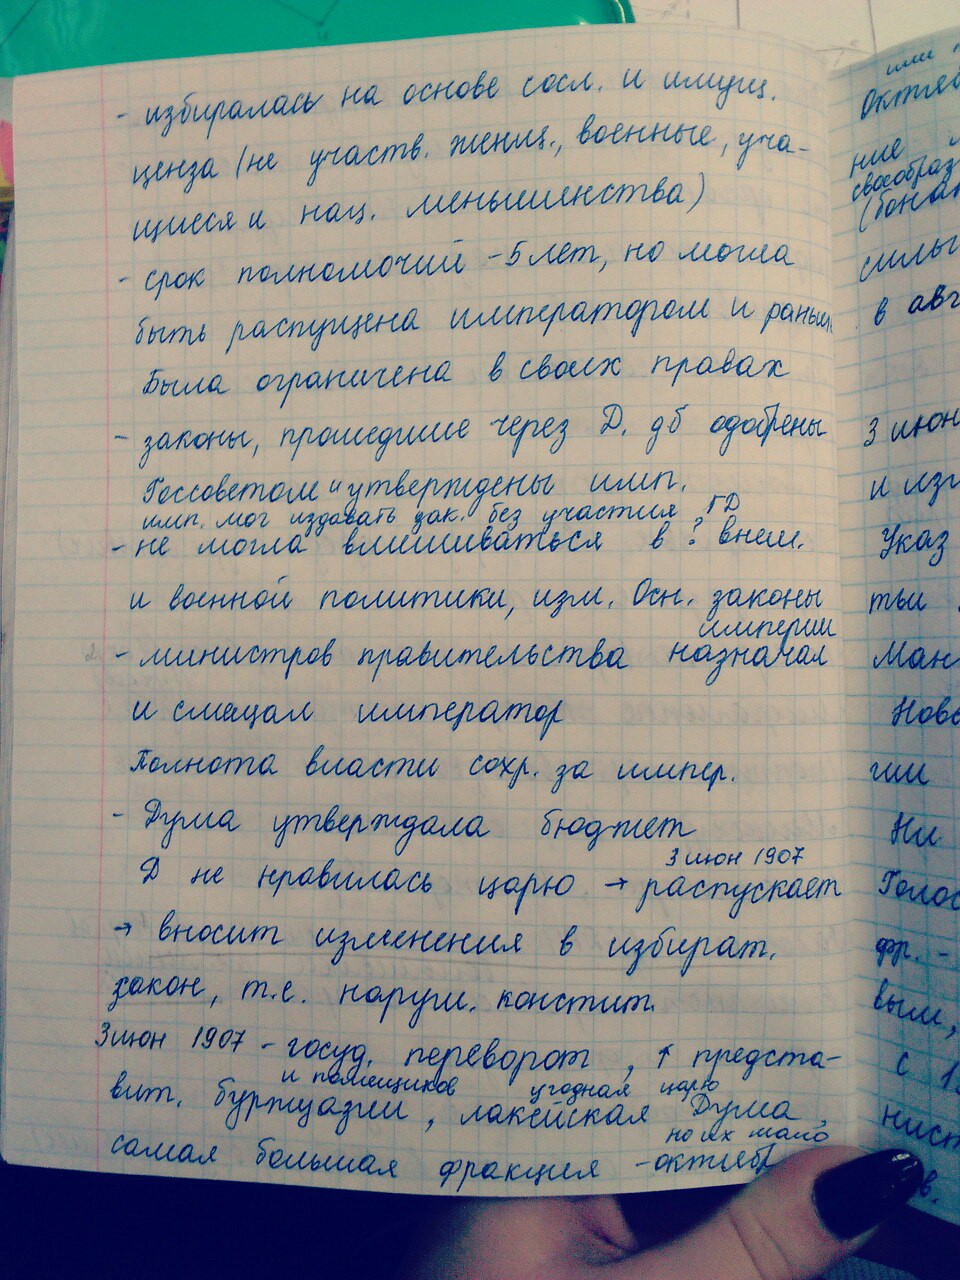 - избиралась на основе сосл. и имущ.
ценза (не участв. женщ., военные, уча-
щиеся и нац. меньшинства)
- срок полномочий - 5 лет, но могла
быть распущена императором и раньше
Была ограничена в своих правах
- законы, прошедшие через Д. дб одобрены
Госсоветом и утверждены имп.
имп. мог издавать зак. без участия ГД
- не могла вмешиваться в ? внеш.
и военной политики, изм. Осн. законы
империи
- министров правительства назначал
и смещал император
Полнота власти сохр. за импер.
- Дума утверждала бюджет
3 июн 1907
Д не нравилась царю → распускает
→ вносит изменения в избират.
закон, т.е. наруш. констит.
3 июн 1907 - госуд. переворот, ↑ предста-
вит. буржуазии и помещиков, лакейская угодная царю Дума,
но их мало
самая большая фракция - октябр
или
Октяб
ние
своеобраз
(бона
силы
в авг
3 июн
и изг
Указ
тьи
Ман
Ново
гии
Ни
Голос
фр. -
вым,
с 1
нист
в.